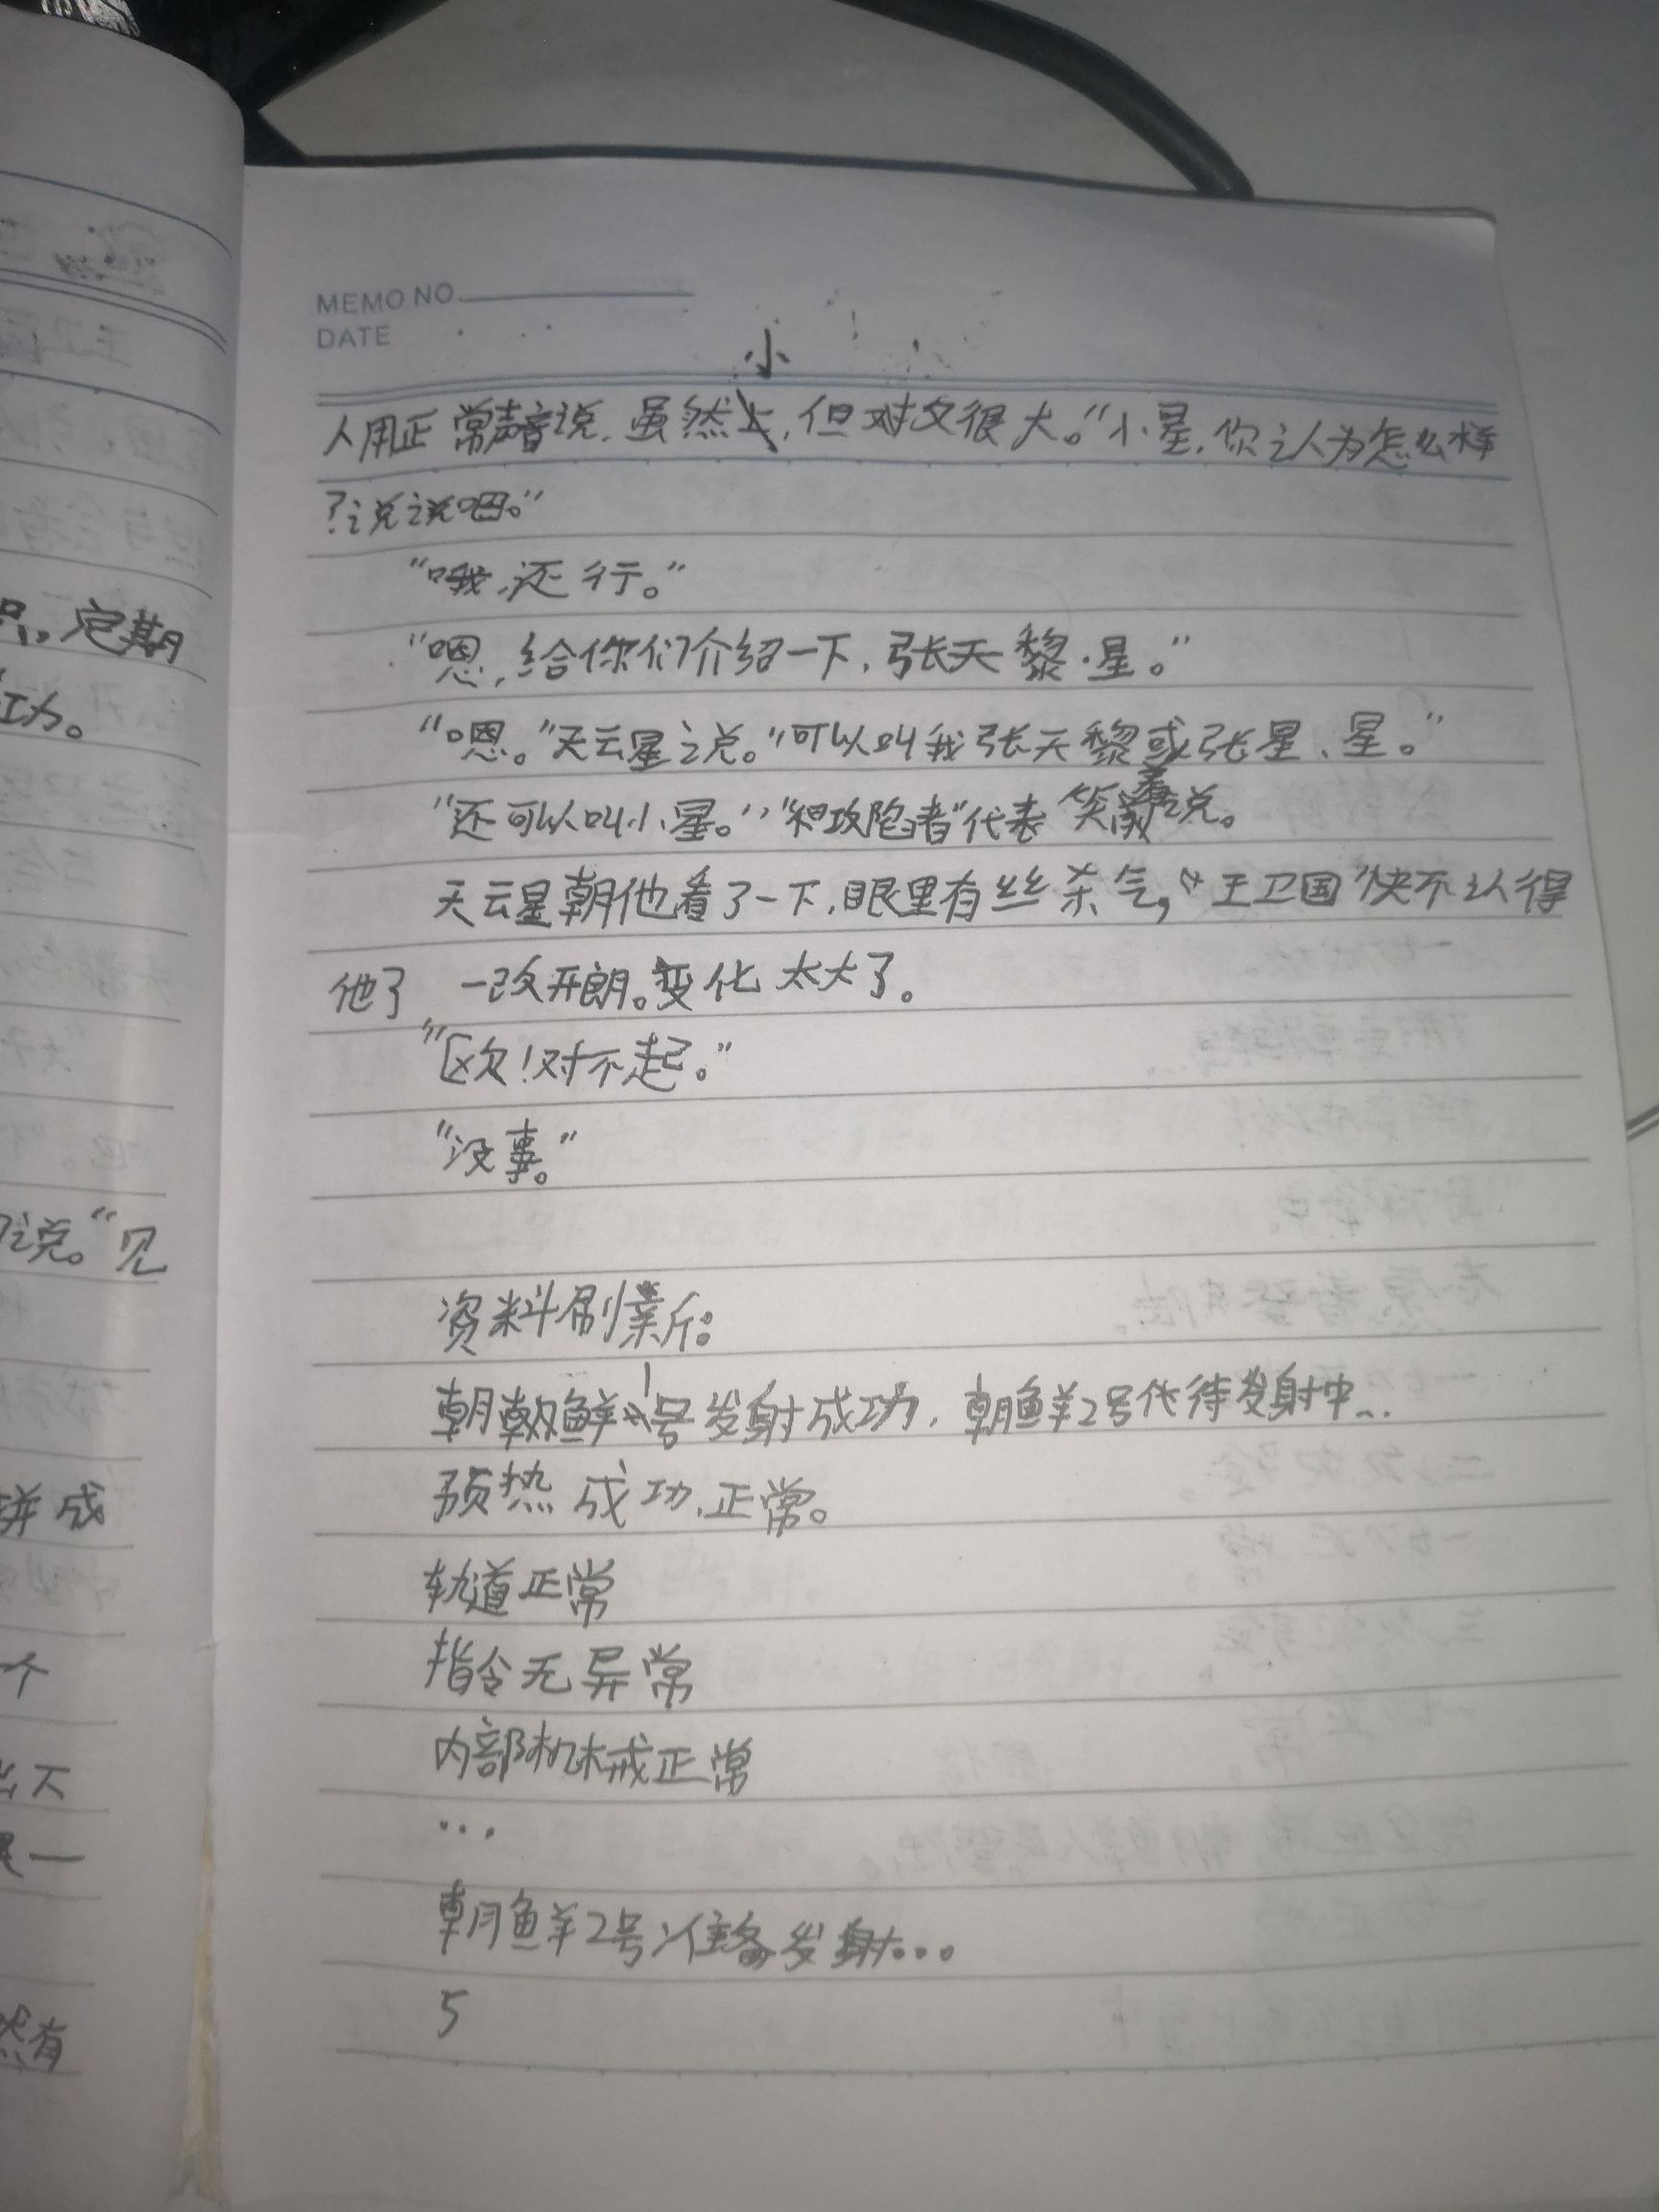 MEMO NO.
DATE
小
人用正常声音说,虽然,但对文很大。"小星,你认为怎么样
?说说吧。"
"哦,还行。"
"嗯,给你们介绍一下,张天黎·星。"
"嗯。"天云星说。"可以叫我张天黎或张星、星。"
"还可以叫小星。""攻陷者"代表笑着说。
天云星朝他看了一下,眼里有丝杀气,"王卫国"快不认得
他了 一改开朗。变化太大了。
"欧!对不起。"
"没事。"
资料刷新:
朝鲜1号发射成功,朝鲜2号代待发射中...
预热成功,正常。
轨道正常
指令无异常
内部机械正常
...
朝鲜2号准备发射...
5
定期
功。
说。"见
拼成
个
出不
是一
然有